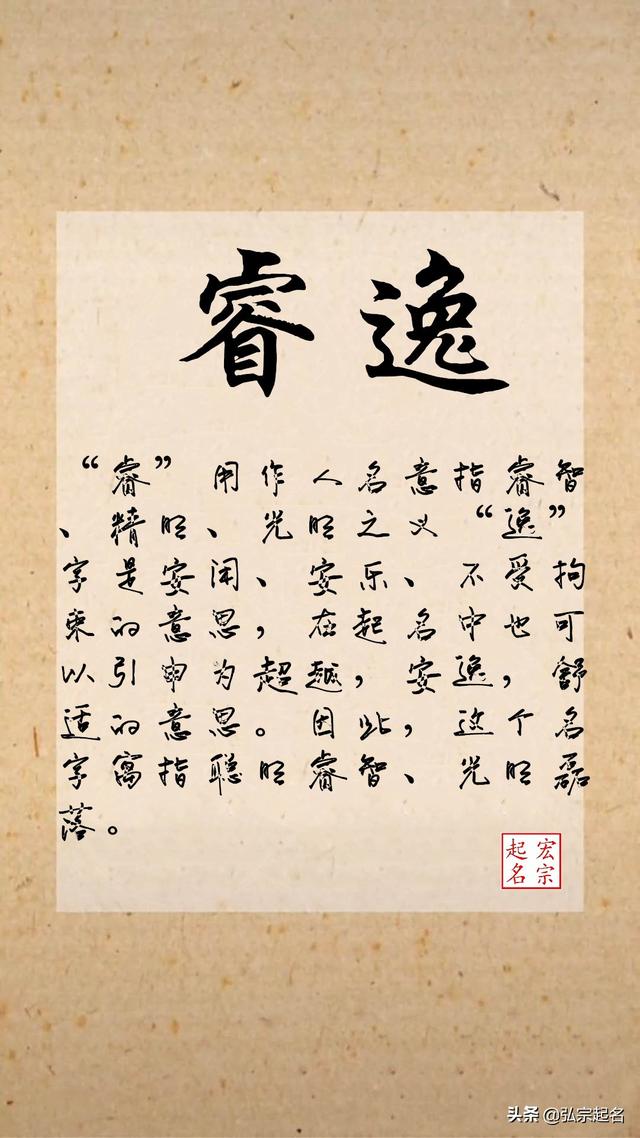 睿逸
“睿”用作人名意指睿智
、精明、光明之义“逸”
字是安闲、安乐、不受拘
束的意思，在起名中也可
以引申为超越，安逸，舒
适的意思。因此，这个名
字寓指聪明睿智、光明磊
落。
宏宗
起名
头条 @弘宗起名